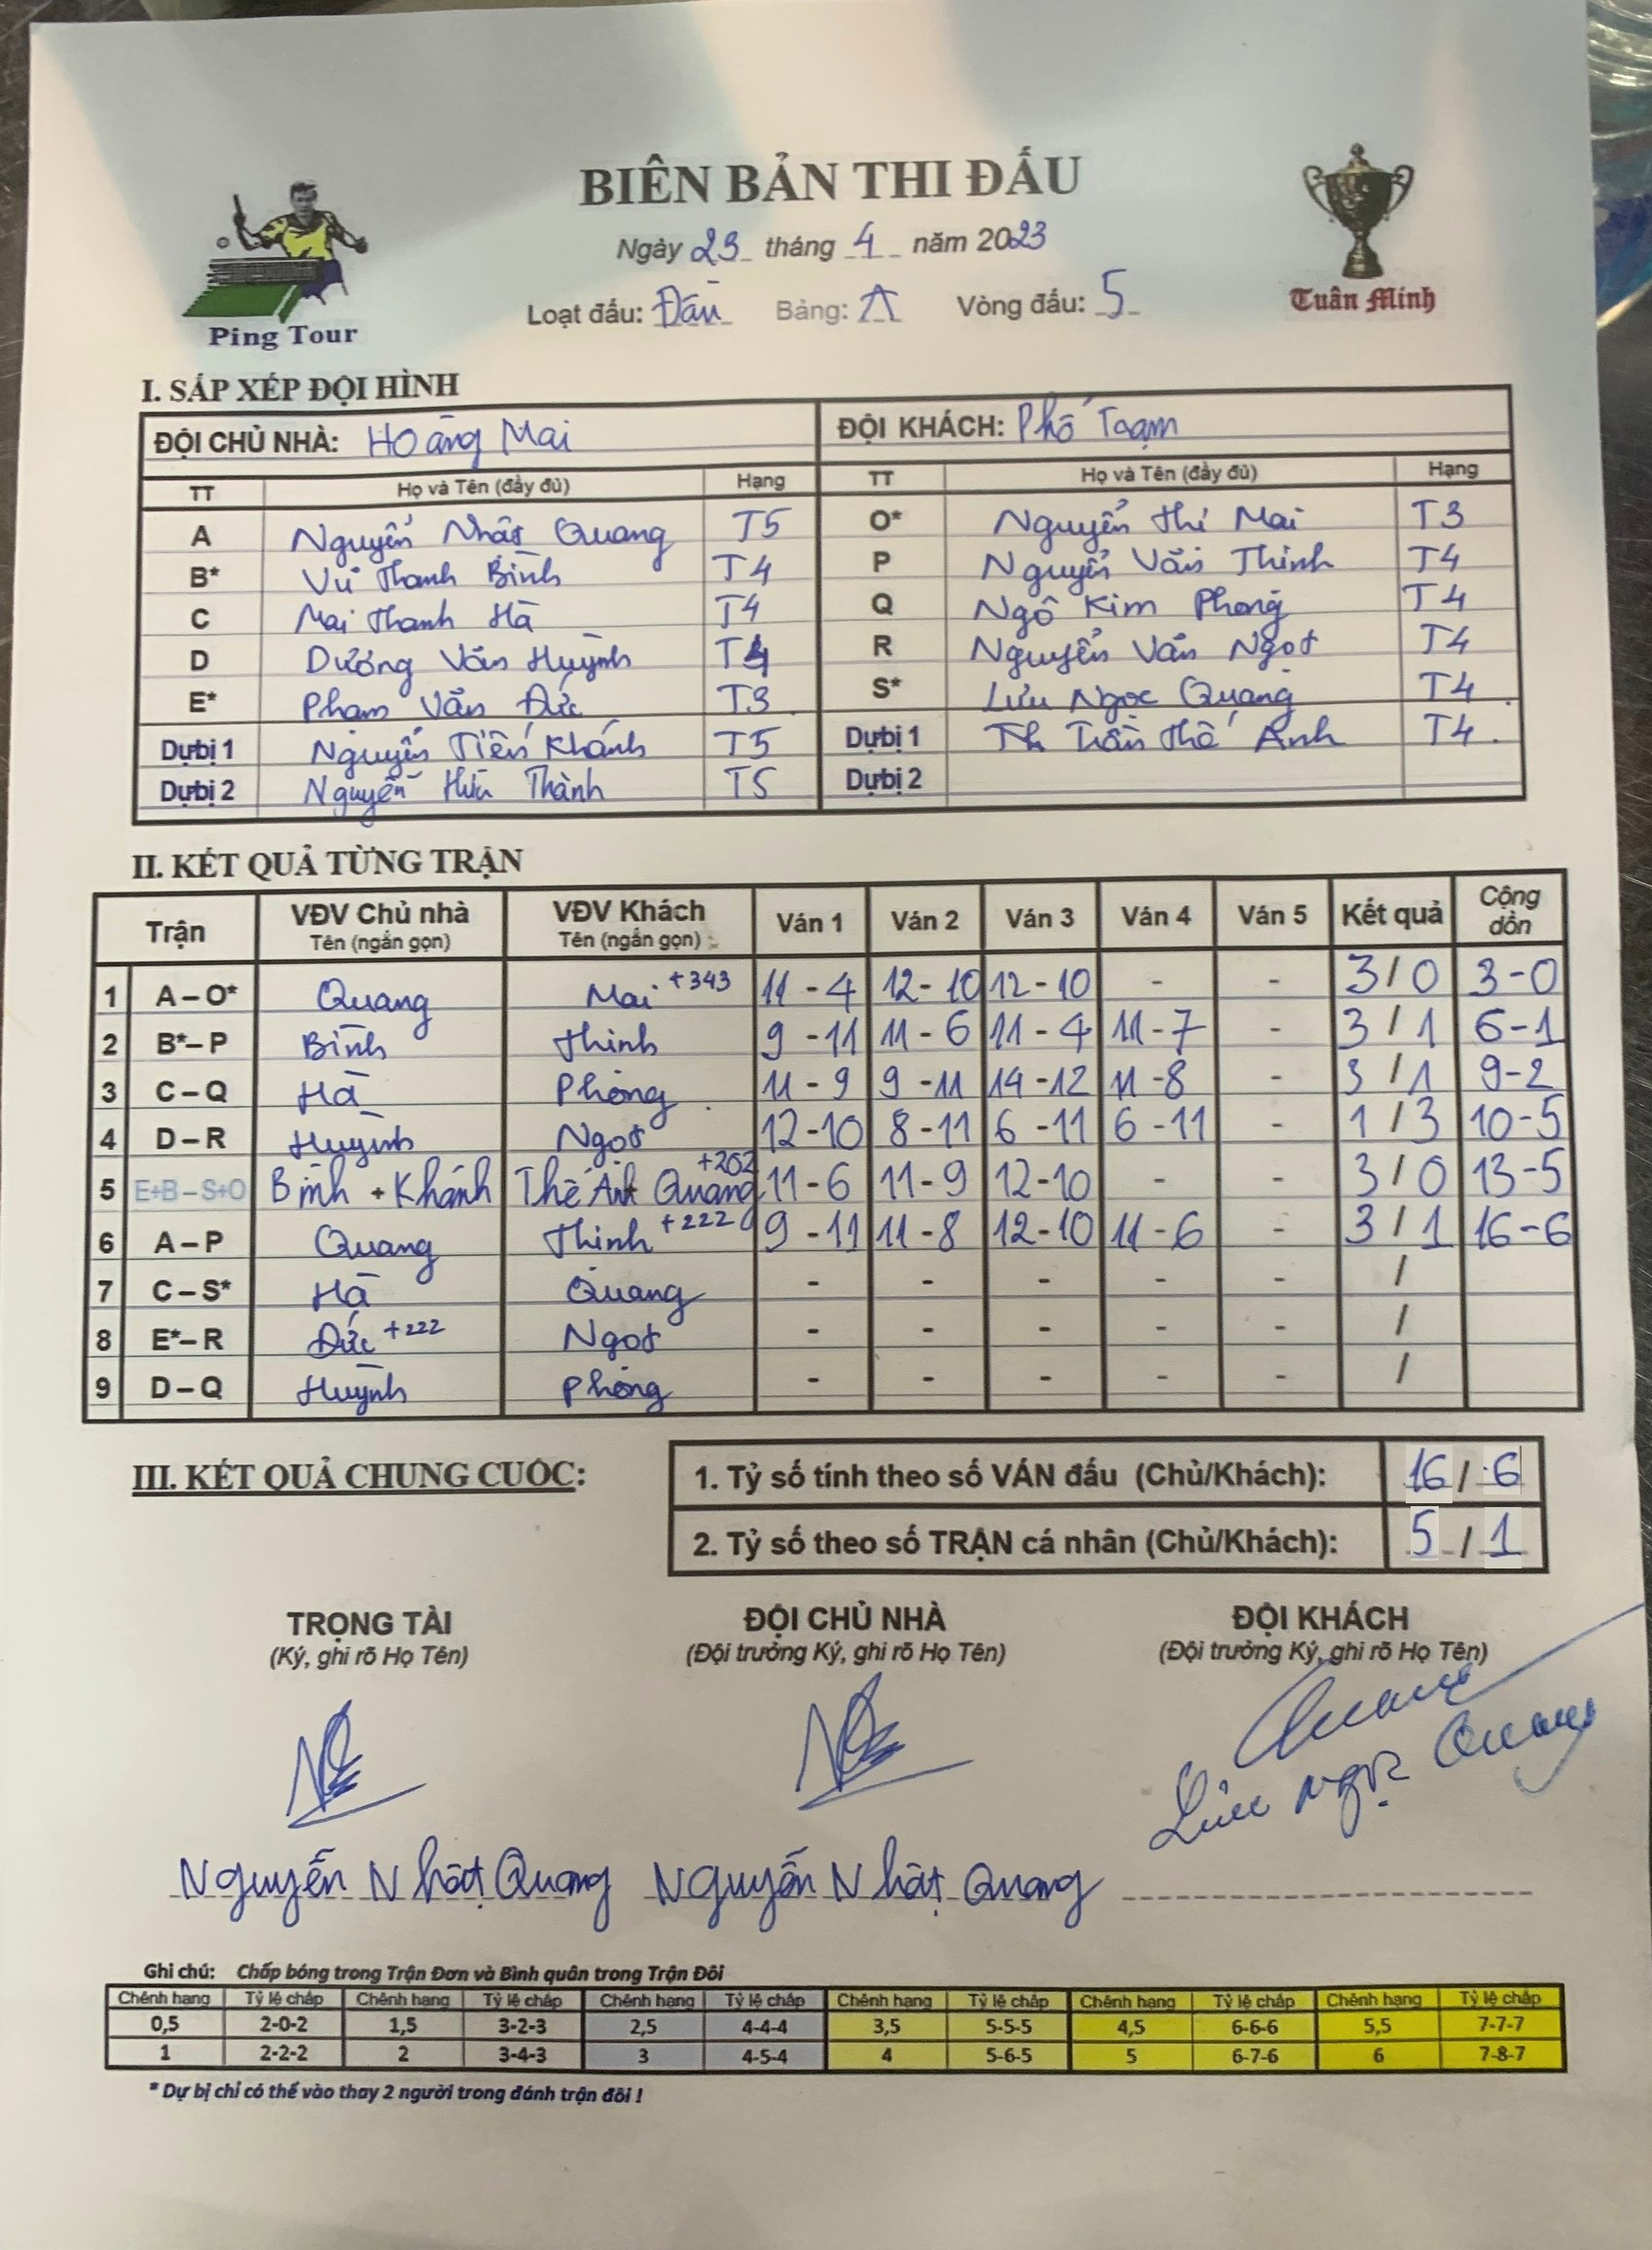 BIÊN BẢN THI ĐẤU
Ngày 23 tháng 4 năm 2023
Ping Tour
Tuấn Minh
Loạt đấu: Đấu Bảng: A Vòng đấu: 5
I. SẮP XẾP ĐỘI HÌNH
ĐỘI CHỦ NHÀ: Hoàng Mai ĐỘI KHÁCH: Phố Trạm
TT Họ và Tên (đầy đủ) Hạng TT Họ và Tên (đầy đủ) Hạng
A Nguyễn Nhật Quang T5 O* Nguyễn Thị Mai T3
B* Vũ Thanh Bình T4 P Nguyễn Văn Thinh T4
C Mai Thanh Hà T4 Q Ngô Kim Phong T4
D Dương Văn Huỳnh T4 R Nguyễn Văn Ngọt T4
E* Phạm Văn Đức T3 S* Lưu Ngọc Quang T4
Dự bị 1 Nguyễn Tiến Khánh T5 Dự bị 1 Trần Thế Anh T4
Dự bị 2 Nguyễn Hữu Thành T5 Dự bị 2
II. KẾT QUẢ TỪNG TRẬN
Trận VĐV Chủ nhà Tên (ngắn gọn) VĐV Khách Tên (ngắn gọn) Ván 1 Ván 2 Ván 3 Ván 4 Ván 5 Kết quả Cộng dồn
1 A – O* Quang Mai +343 11 - 4 12 - 10 12 - 10 - - 3 / 0 3 - 0
2 B* – P Bình Thinh 9 - 11 11 - 6 11 - 4 11 - 7 - 3 / 1 6 - 1
3 C – Q Hà Phong 11 - 9 9 - 11 14 - 12 11 - 8 - 3 / 1 9 - 2
4 D – R Huỳnh Ngọt 12 - 10 8 - 11 6 - 11 6 - 11 - 1 / 3 10 - 5
5 E+B – S+O Bình + Khánh Thế Anh Quang +202 11 - 6 11 - 9 12 - 10 - - 3 / 0 13 - 5
6 A – P Quang Thinh +222 9 - 11 11 - 8 12 - 10 11 - 6 - 3 / 1 16 - 6
7 C – S* Hà Quang - - - - - /
8 E* – R Đức +222 Ngọt - - - - - /
9 D – Q Huỳnh Phong - - - - - /
III. KẾT QUẢ CHUNG CUỘC:
1. Tỷ số tính theo số VÁN đấu (Chủ/Khách): 16 / 6
2. Tỷ số theo số TRẬN cá nhân (Chủ/Khách): 5 / 1
TRỌNG TÀI ĐỘI CHỦ NHÀ ĐỘI KHÁCH
(Ký, ghi rõ Họ Tên) (Đội trưởng Ký, ghi rõ Họ Tên) (Đội trưởng Ký, ghi rõ Họ Tên)
Quang
Lưu Ngọc Quang
Nguyễn Nhật Quang Nguyễn Nhật Quang
Ghi chú: Chấp bóng trong Trận Đơn và Bình quân trong Trận Đôi
Chênh hạng Tỷ lệ chấp Chênh hạng Tỷ lệ chấp Chênh hạng Tỷ lệ chấp Chênh hạng Tỷ lệ chấp Chênh hạng Tỷ lệ chấp Chênh hạng Tỷ lệ chấp
0,5 2-0-2 1,5 3-2-3 2,5 4-4-4 3,5 5-5-5 4,5 6-6-6 5,5 7-7-7
1 2-2-2 2 3-4-3 3 4-5-4 4 5-6-5 5 6-7-6 6 7-8-7
* Dự bị chỉ có thể vào thay 2 người trong đánh trận đôi !